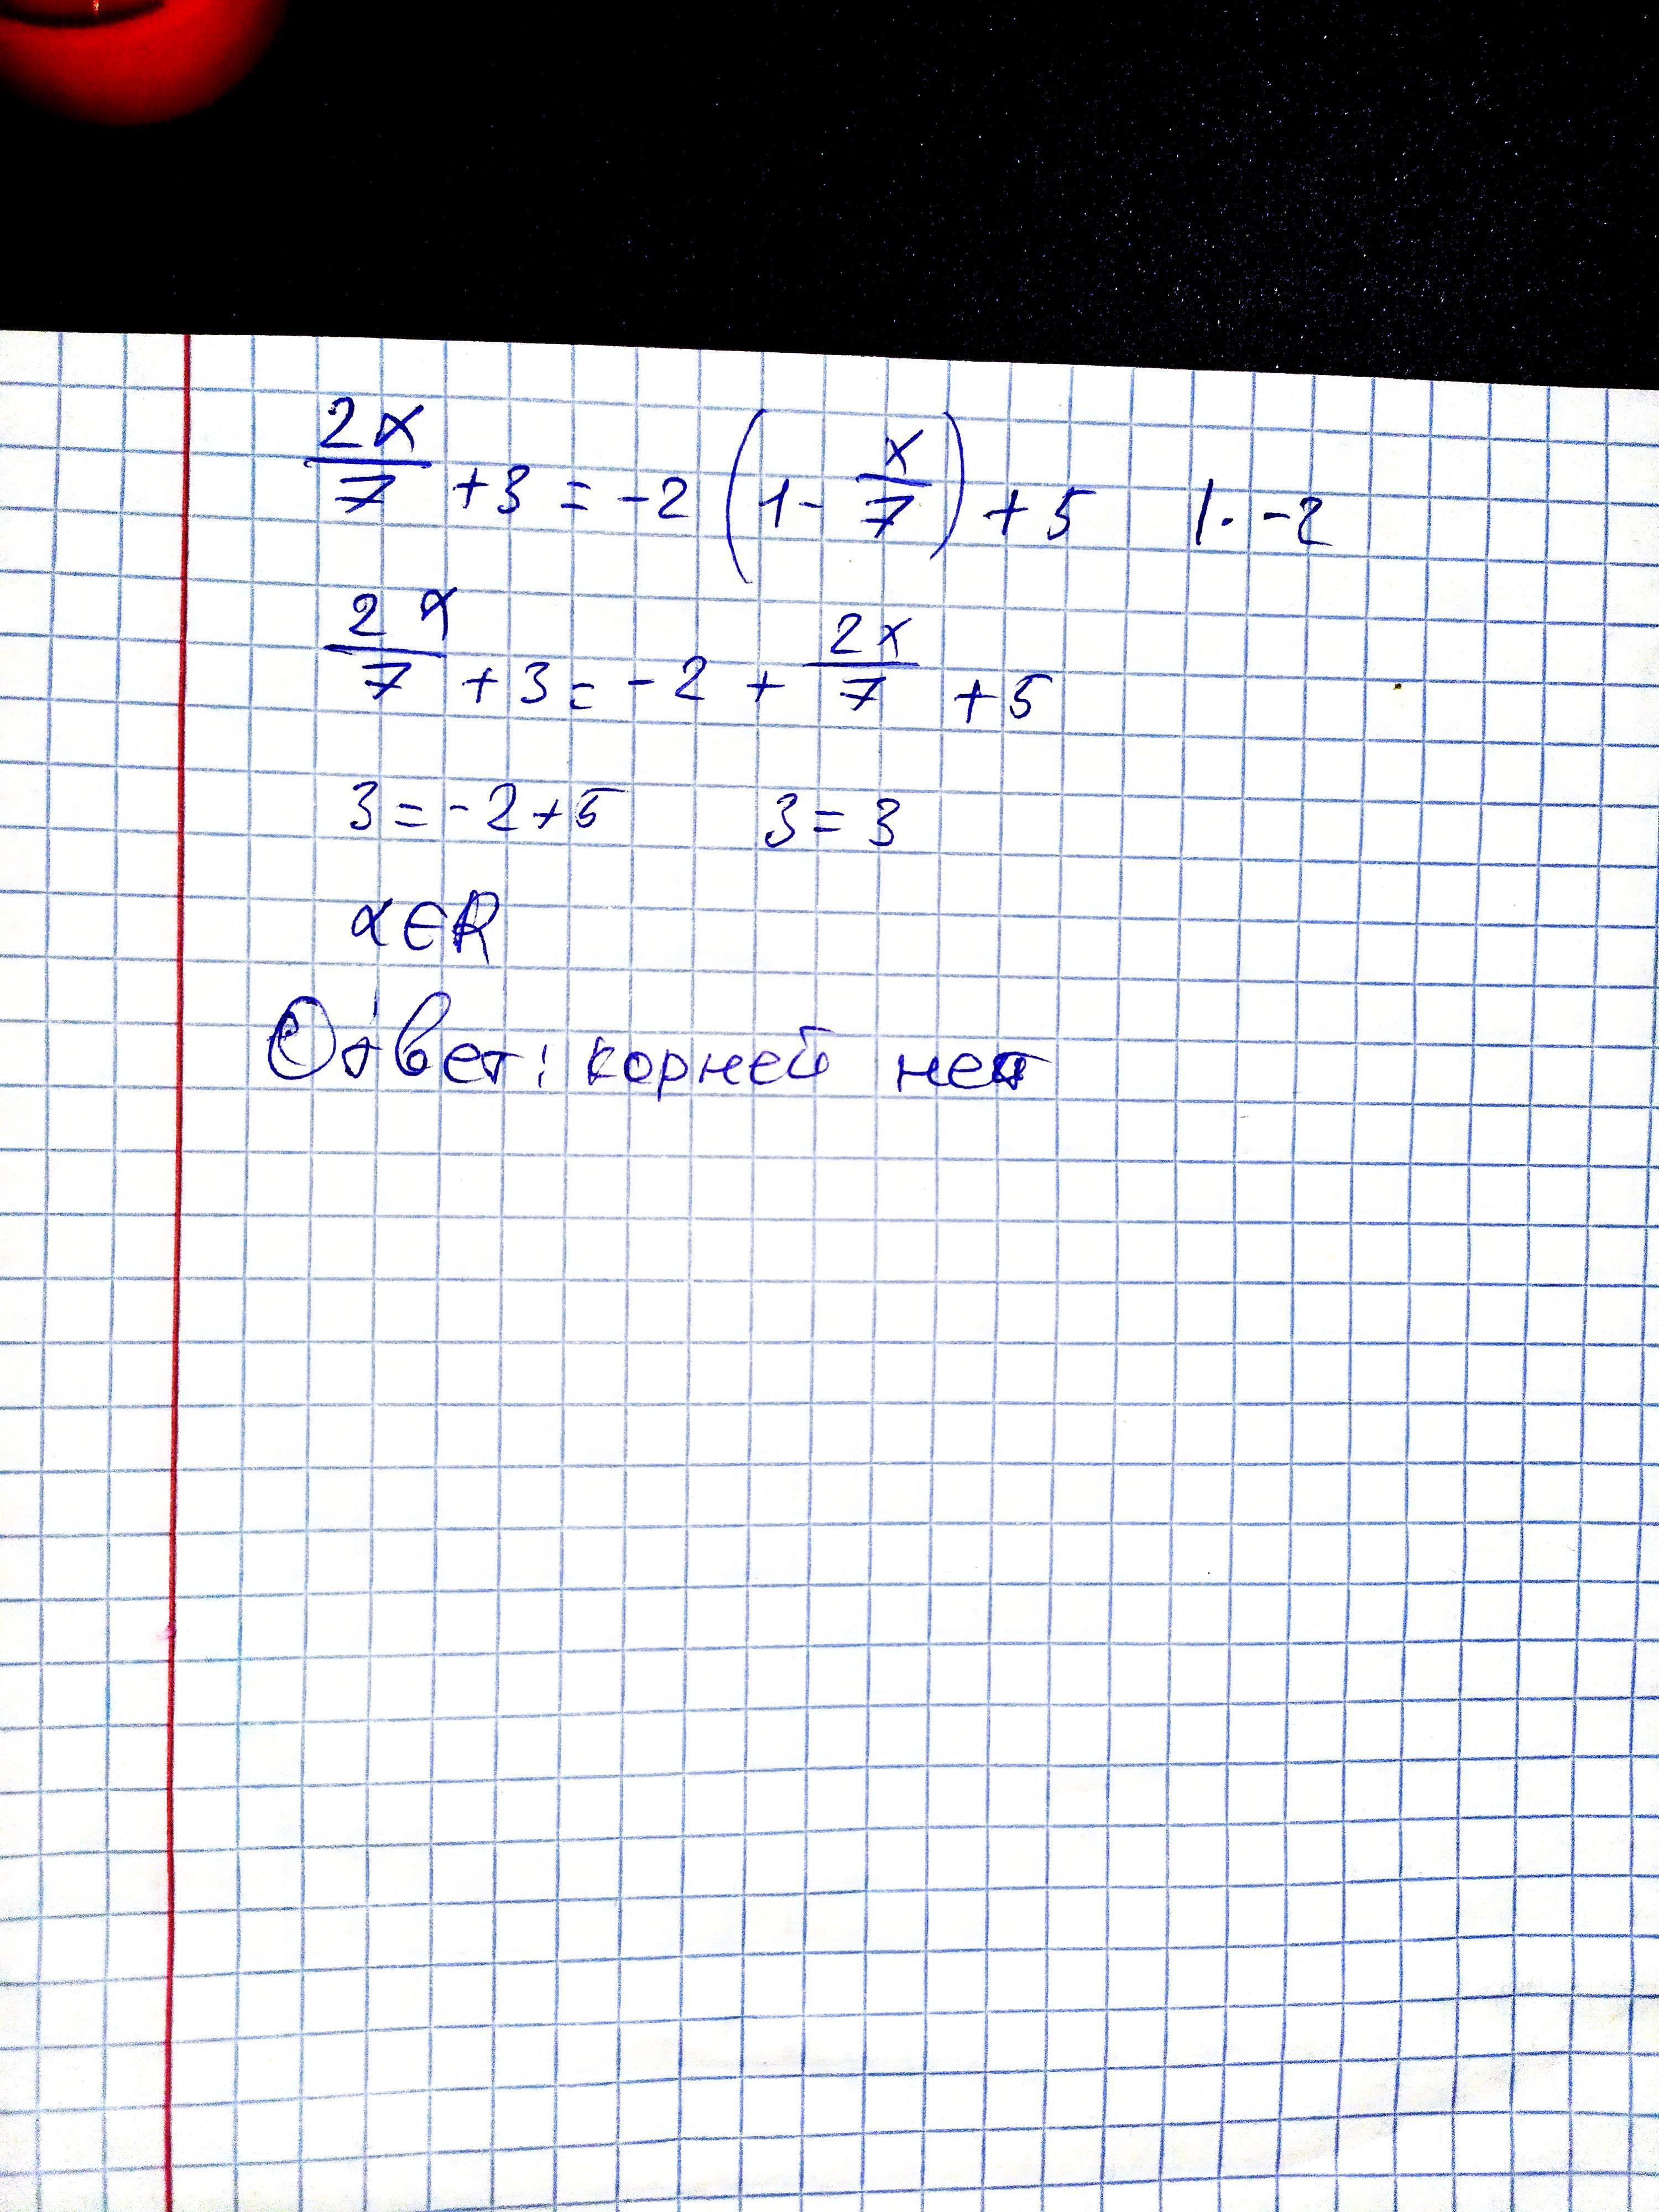 2x/7 +3 = -2 (1- x/7) + 5 |· -2
2x/7 +3 = -2 + 2x/7 +5
3 = -2+5 3 = 3
x ∈ R
Ответ: корней нет